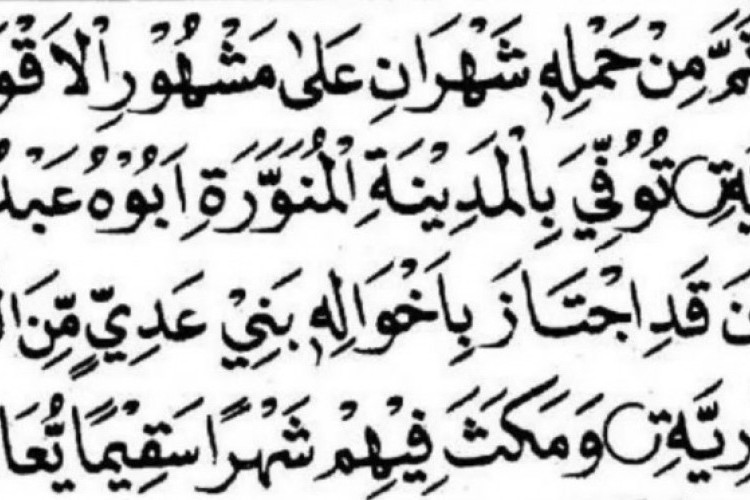 تَمَّ مِنْ حَمْلِهٖ شَهْرَانِ عَلٰى مَشْهُوْرِ الْاَقْوَ
يَّةِ تُوُفِّيَ بِالْمَدِيْنَةِ الْمُنَوَّرَةِ اَبُوْهُ عَبْدُ
نَ قَدِ اجْتَازَ بِاَخْوَالِهٖ بَنِيْ عَدِيٍّ مِّنَ ال
رِيَّةِ وَمَكَثَ فِيْهِمْ شَهْرًا سَقِيْمًا يُّعَا